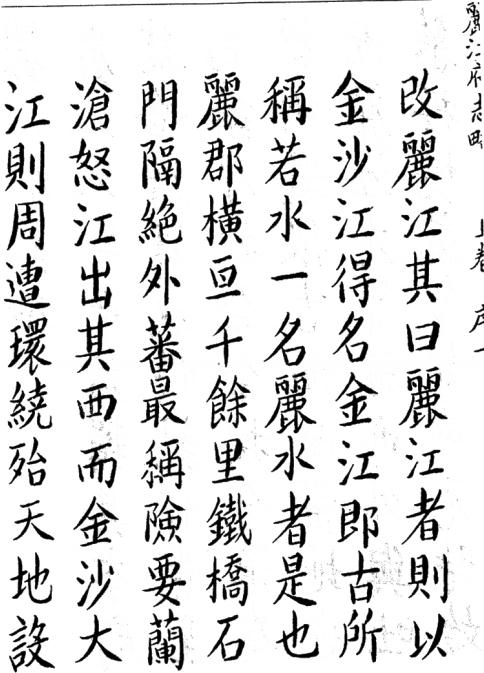 麗江府志略 上卷 序一
改麗江其曰麗江者則以
金沙江得名金江即古所
稱若水一名麗水者是也
麗郡橫亘千餘里鐵橋石
門隔絶外蕃最稱險要蘭
滄怒江出其西而金沙大
江則周遭環繞殆天地設